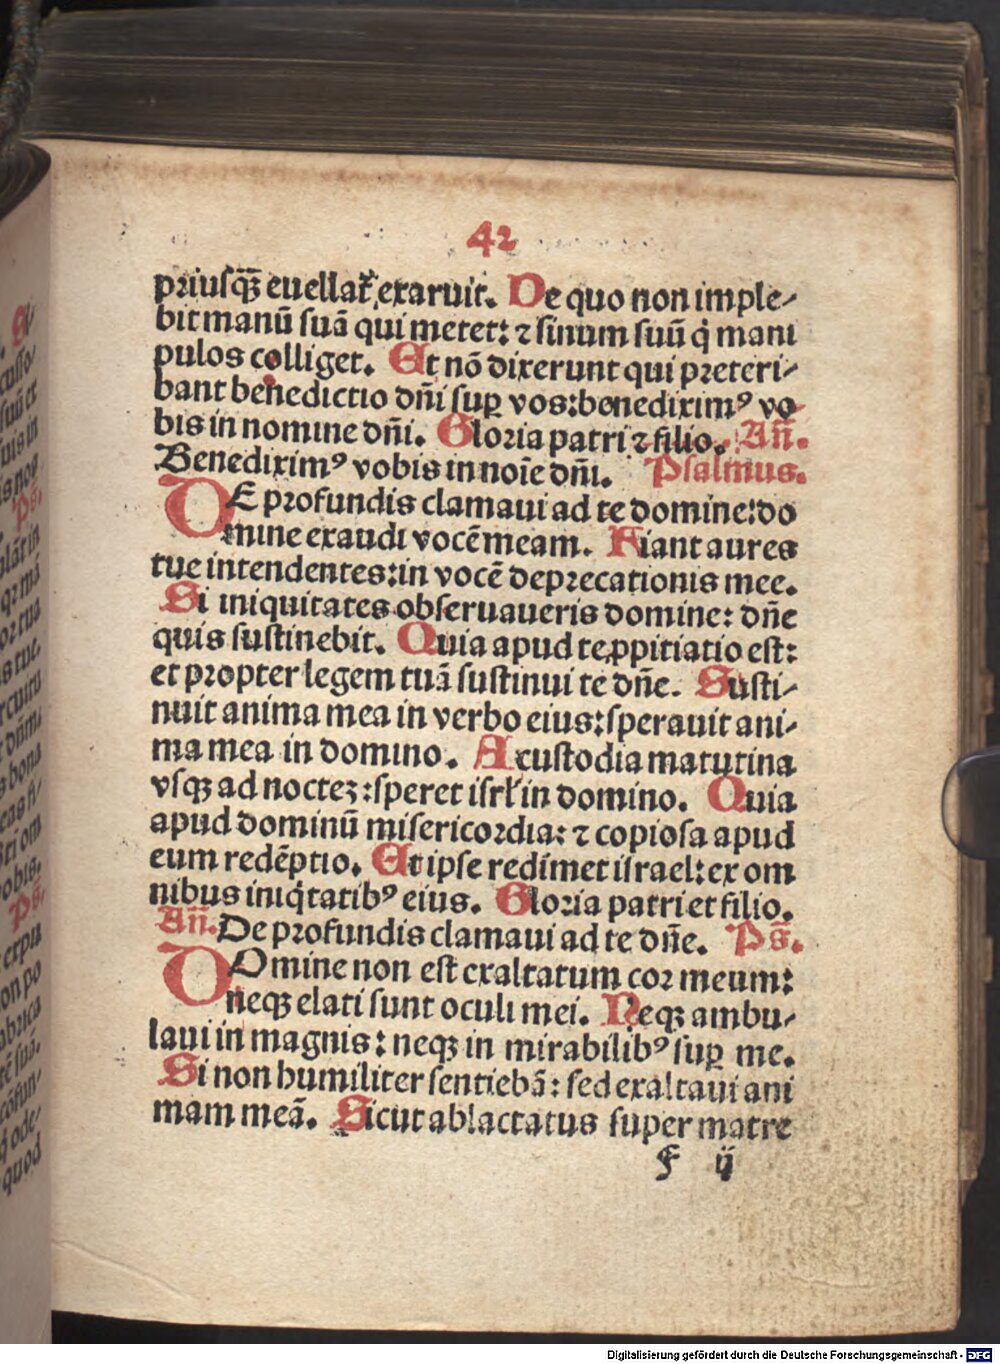 42
priusq̄ꝫ euellat᷑ exaruit. De quo non imple⸗
bit manū suā qui metet: ⁊ sinum suū q̇ mani
pulos colliget. Et nō dixerunt qui preteri⸗
bant benedictio dn̄i suꝑ vos:benediximꝰ vo
bis in nomine dn̄i. Gloria patri ⁊ filio. Añ.
Benediximꝰ vobis in noīe dn̄i. Psalmus.
DE profundis clamaui ad te domine:do
mine exaudi vocē meam. Fiant aures
tue intendentes:in vocē deprecationis mee.
Si iniquitates obseruaueris domine: dn̄e
quis sustinebit. Quia apud te ꝓpitiatio est:
et propter legem tuā sustinui te dn̄e. Susti⸗
nuit anima mea in verbo eius:sperauit ani⸗
ma mea in domino. A custodia matutina
vsqꝫ ad nocteꝫ:speret isrl̄ in domino. Quia
apud dominū misericordia: ⁊ copiosa apud
eum redēptio. Et ipse redimet israel: ex om
nibus iniq̇tatibꝰ eius. Gloria patri et filio.
Añ. De profundis clamaui ad te dn̄e. Ps̄.
DOmine non est exaltatum cor meum:
neqꝫ elati sunt oculi mei. Neqꝫ ambu⸗
laui in magnis: neqꝫ in mirabilibꝰ suꝑ me.
Si non humiliter sentiebā: sed exaltaui ani
mam meā. Sicut ablactatus super matre
f ij
Digitalisierung gefördert durch die Deutsche Forschungsgemeinschaft - DFG